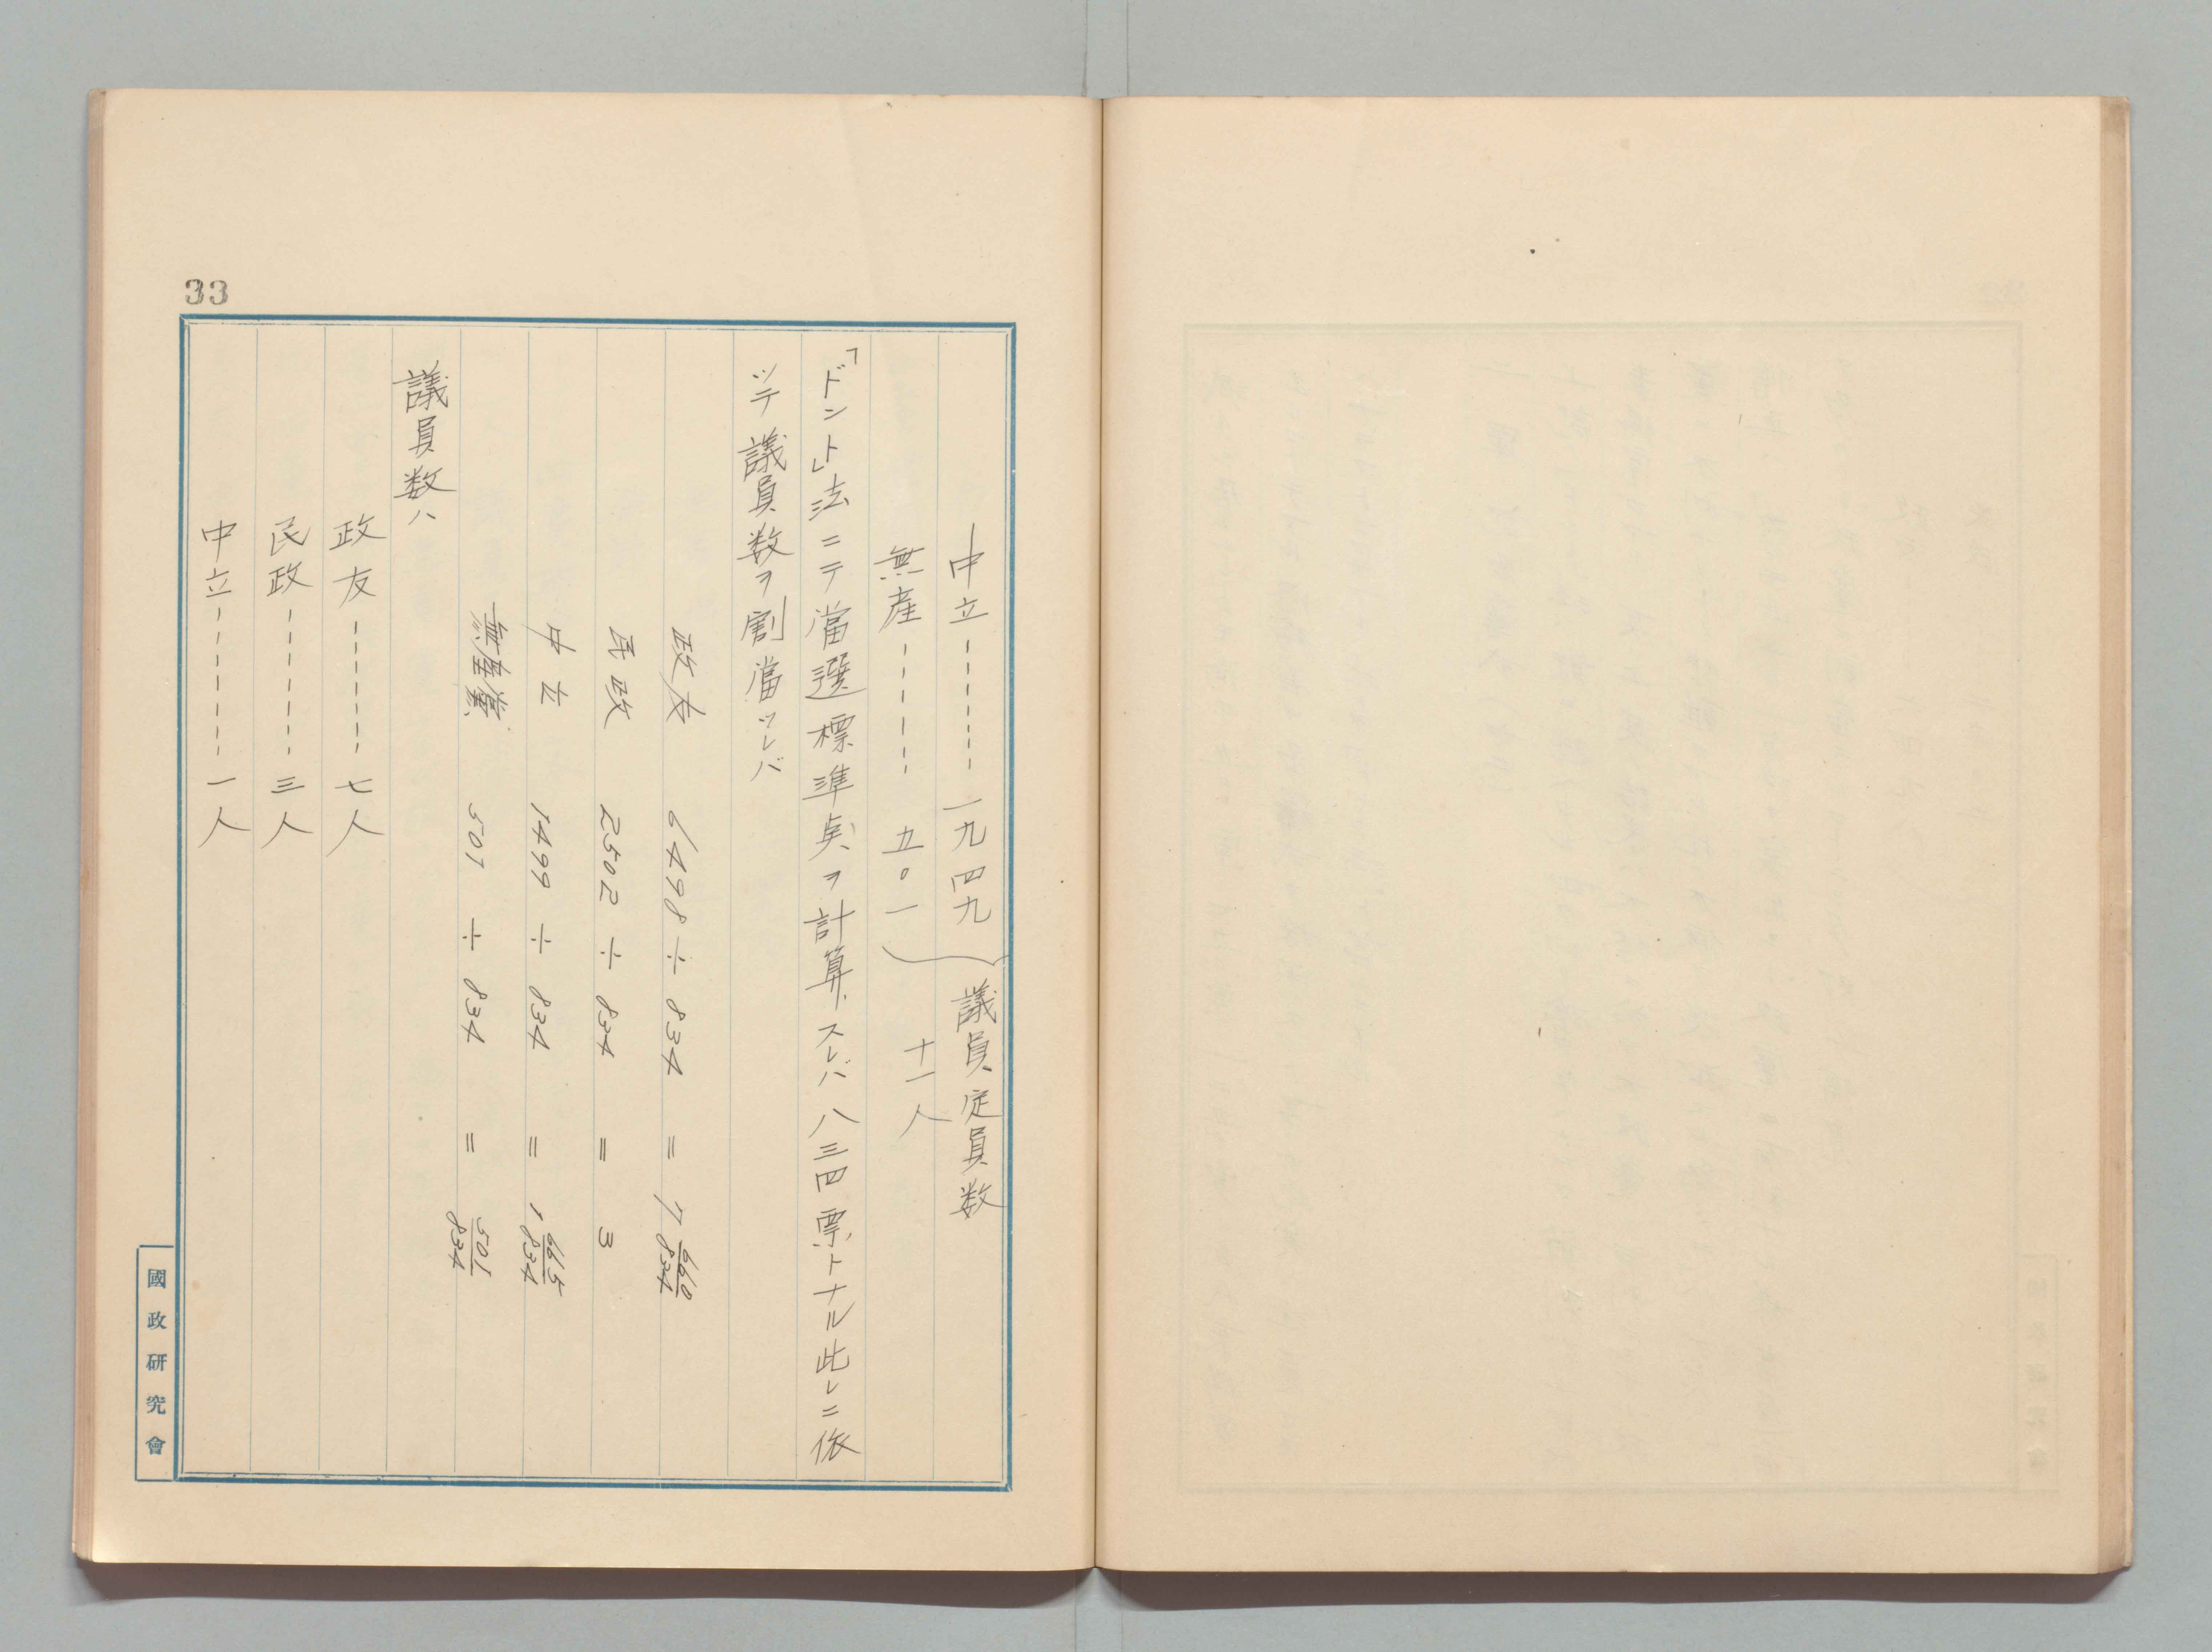 33
中立-------一九四九
議員定員数
無産------五〇一
十一人
「ドント」法ニテ當選標準点ヲ計算スレバ八三四票トナル此レニ依
ツテ議員数ヲ割當ツレバ
政友 6498 ÷ 834 = 7 660/834
民政 2502 ÷ 834 = 3
中立 1499 ÷ 834 = 1 665/834
無産黨 501 ÷ 834 = 501/834
議員数ハ
政友------七人
民政------三人
中立-------一人
國政研究會